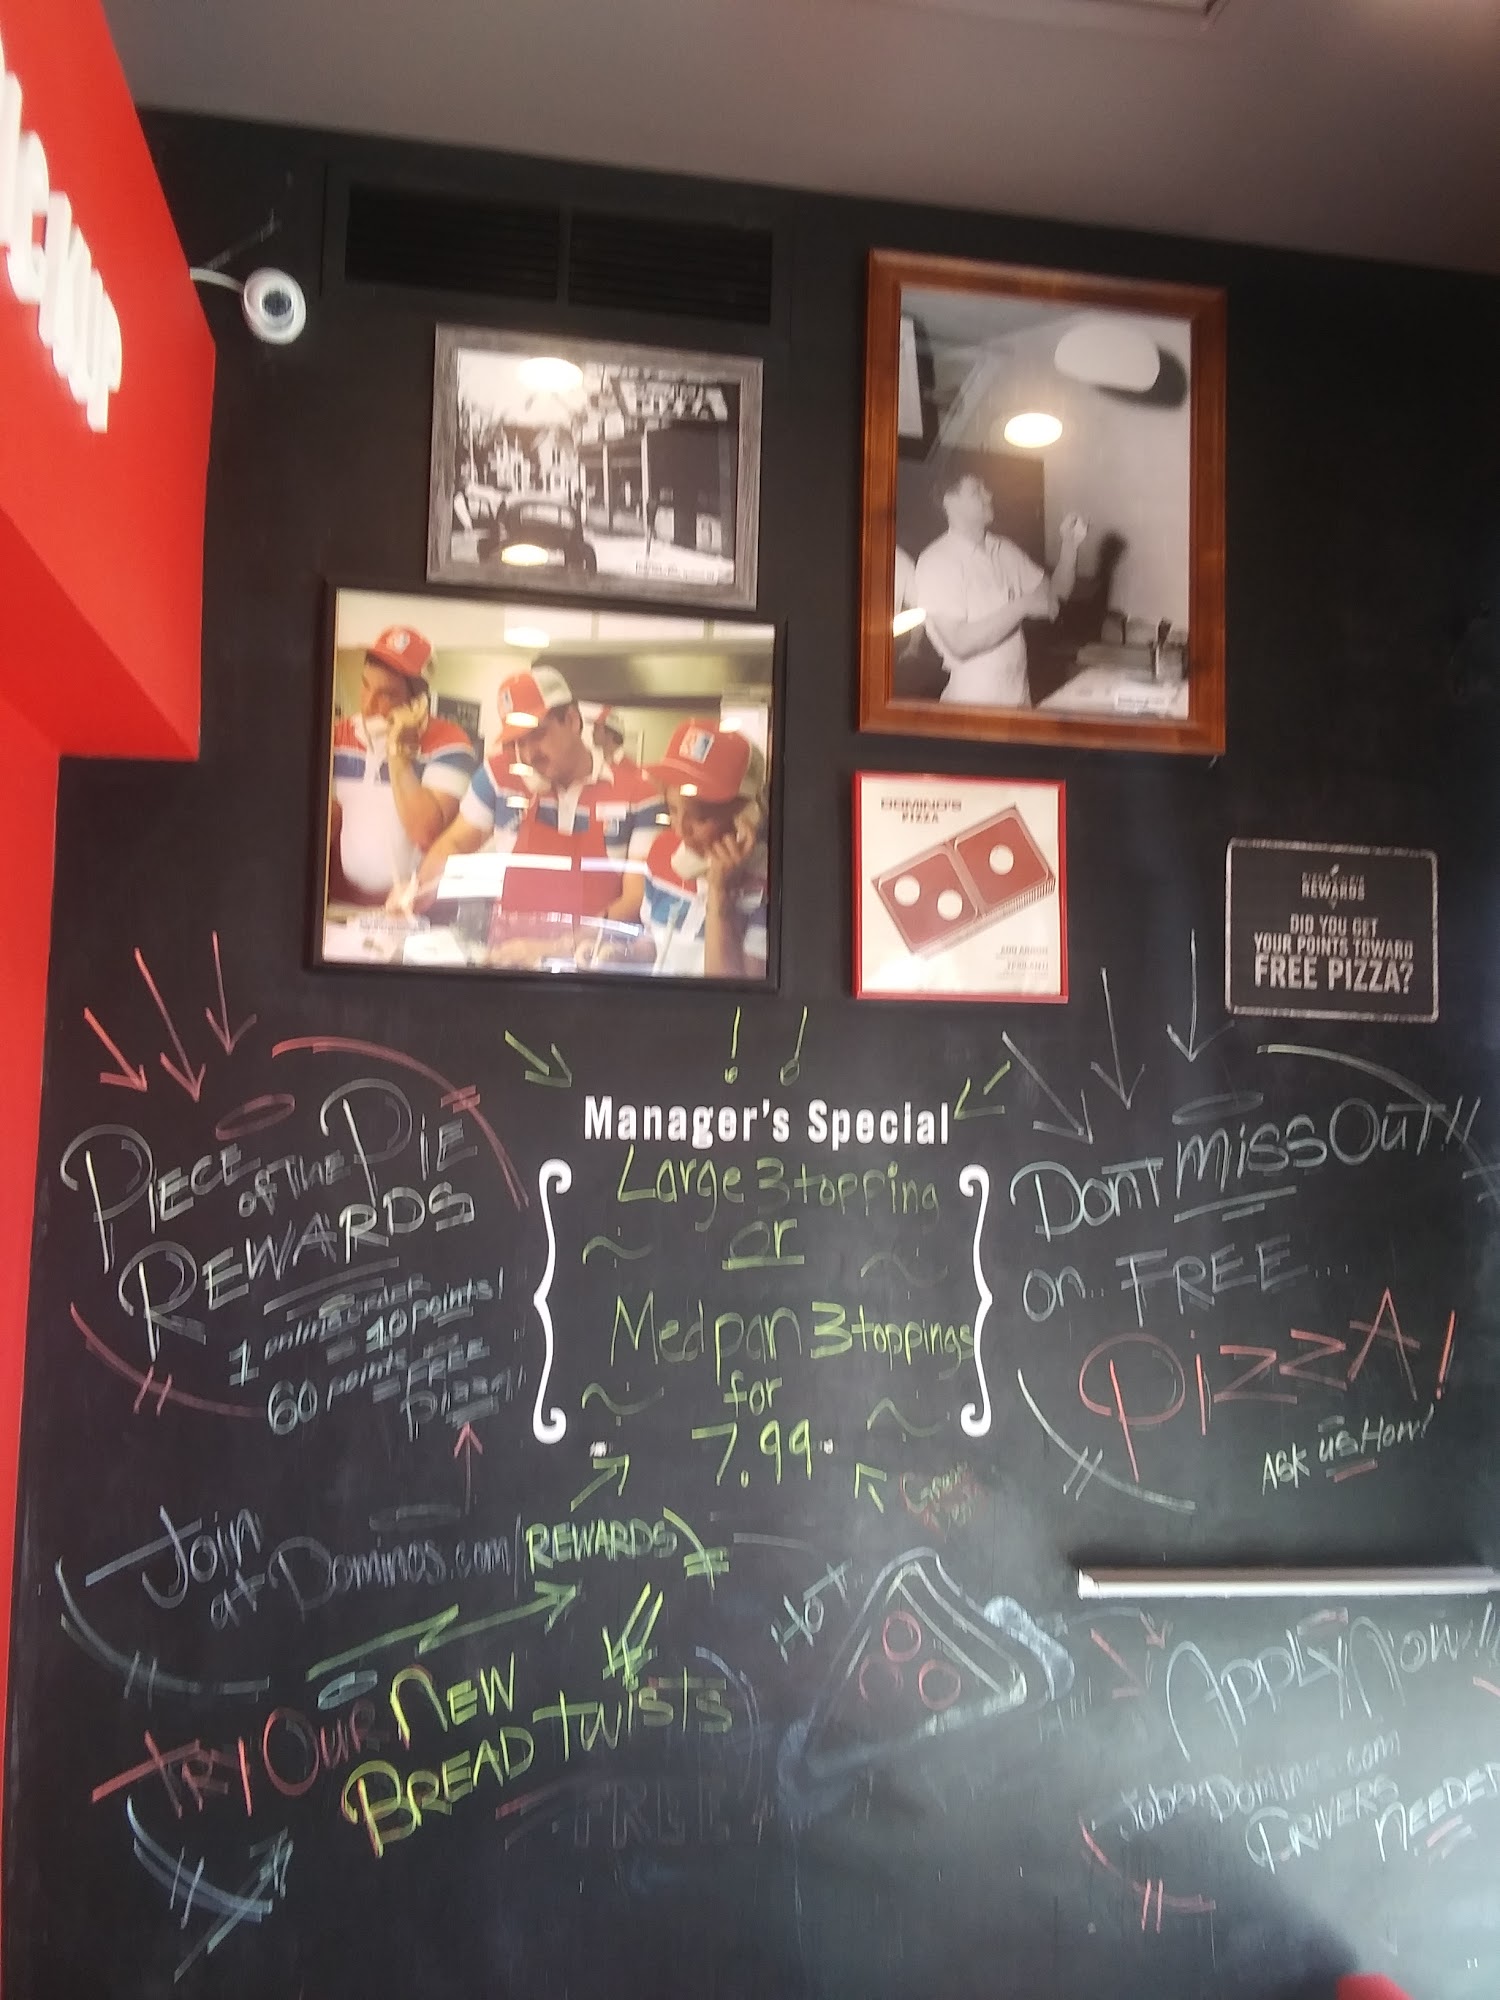 DOMINO'S
PIZZA
REWARDS
DID YOU GET
YOUR POINTS TOWARD
FREE PIZZA?
PIECE
of THE PIE
REWARDS
1 online ORDER
= 10 points!
60 points
= FREE
Pizza!
Manager's Special
Large 3 topping
or
Med pan 3 toppings
for
7.99
DONT MISS OUT!!
on.. FREE...
PIZZA!
ASK us How!
Join
at Dominos.com/REWARDS
TRY OUR NEW
BREAD TWISTS
HOT
APPLY NOW!!
Jobs.Dominos.com
DRIVERS NEEDED